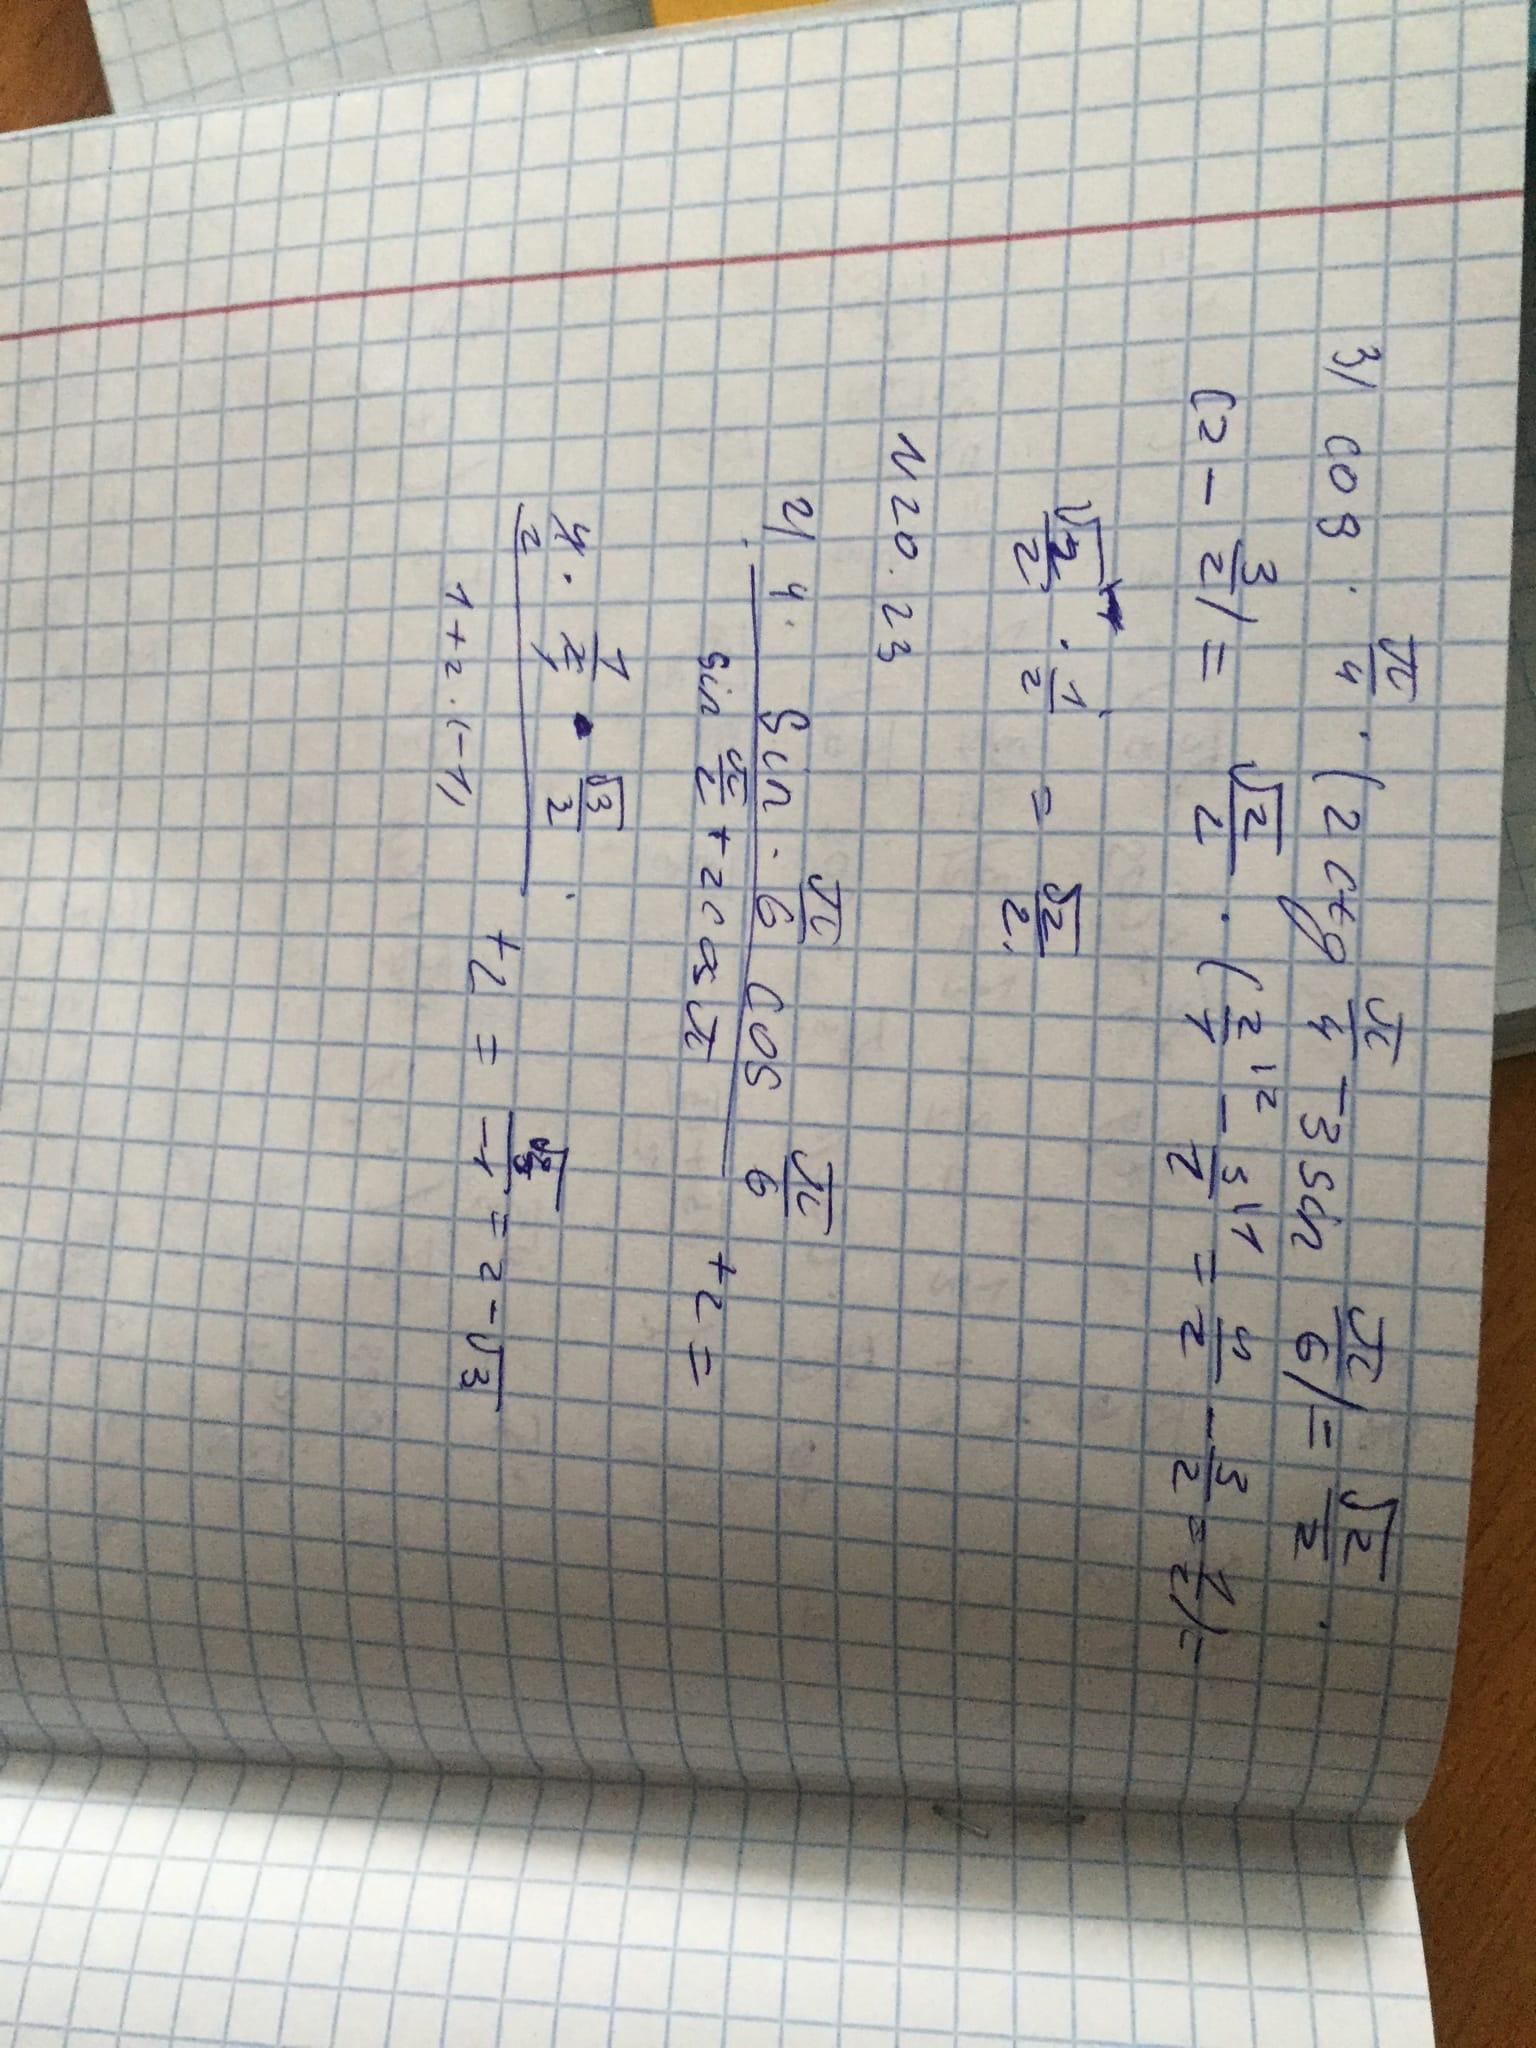 3) cos · π/4 · (2 ctg π/4 - 3 sin π/6) = √2/2 ·
(2 - 3/2) = √2/2 · (2/1 |2 - 3/2 |1 = 4/2 - 3/2 = 1/2) =
√2/2 · 1/2 = √2/2.
N20.23
2) 4 · sin · π/6 cos π/6 / sin π/2 + 2 cos π + 2 =
4 · 1/2 · √3/2 / 1 + 2 · (-1) + 2 = √3/-1 = 2 - √3